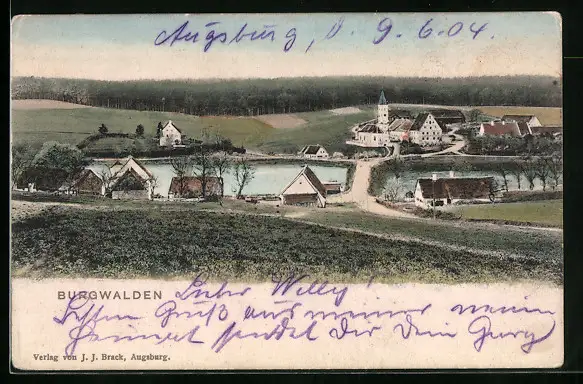 Augsburg, d. 9.6.04.
BURGWALDEN
Lieber Willy!
Schönen Gruß aus meiner neuen
Heimat sendet Dir Dein Georg
Verlag von J. J. Brack, Augsburg.